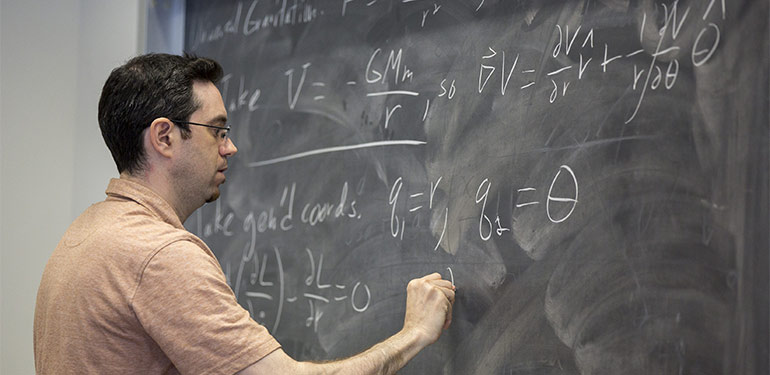 Gravitation. F = r²
Take V = - GMm/r, so ∇⃗V = ∂V/∂r r̂ + 1/r ∂V/∂θ θ̂
Take gen'd coords. q₁ = r, q₂ = θ
(∂L/∂) - ∂L/∂r = 0